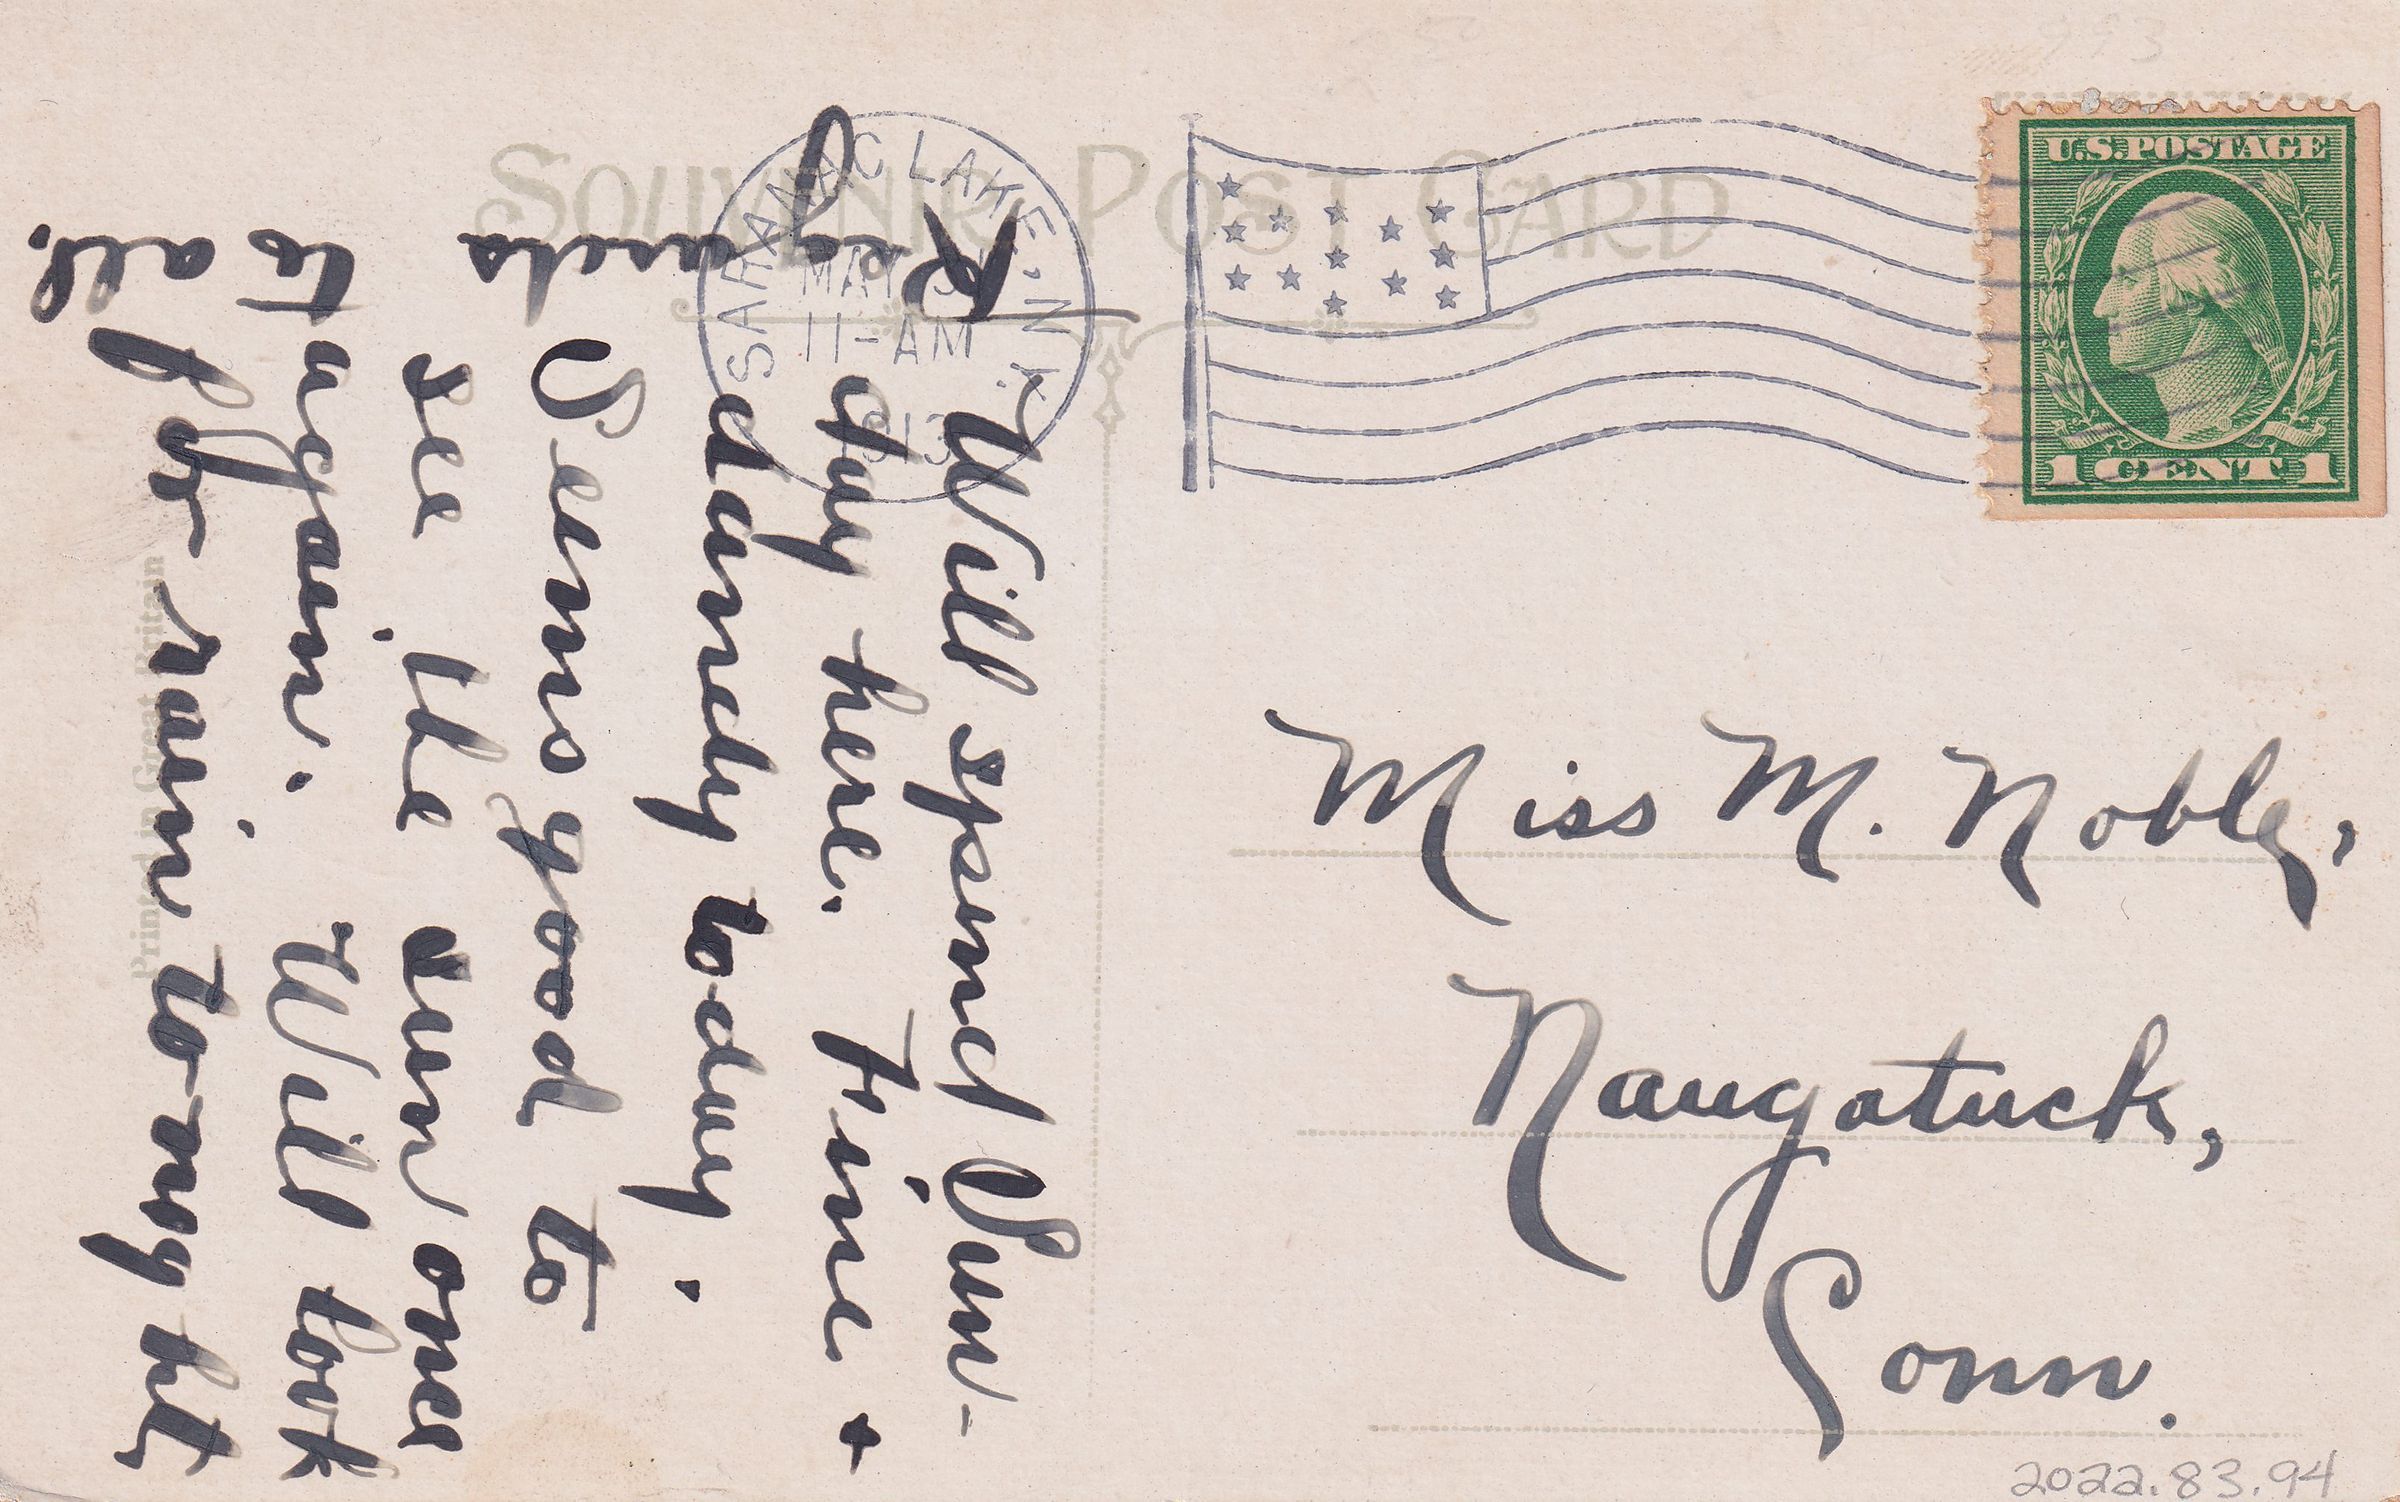 SOUVENIR POST CARD
SARANAC LAKE, N.Y.
MAY
11-AM
1913
U.S. POSTAGE
1 CENT 1
Miss M. Noble,
Naugatuck,
Conn.
Will spend Sun-
day here. Fine +
dandy today.
Seems good to
see the sun once
again. Will look
for rain to-night
Regards
to
all.
R
Printed in Great Britain
2022.83.94